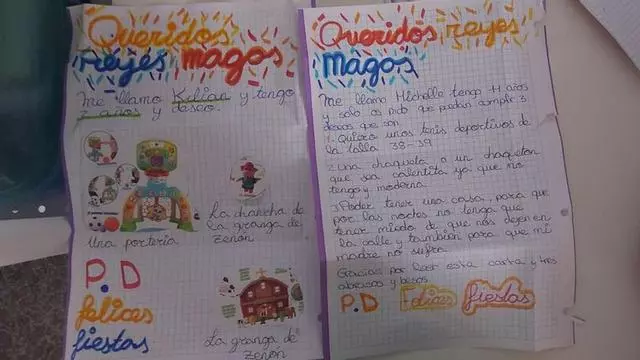 Queridos
reyes magos
Me llamo Kilian y tengo
2 años y deseo.
Una portería
La chancha de
la granga de
zenón
P.D
felices
fiestas
La granga de
zenón
Queridos reyes
Magos
Me llamo Michelle tengo 11 años
y solo os pido que puedan cumplir 3
deseos que son
1. Quiero unos tenis deportivos de
la talla 38-39
2. una chaqueta o un chaqueton
que sea calentita ya que no
tengo y moderna
3. Poder tener una casa, para que
por las noches no tenga que
tener miedo de que nos dejen en
la calle y también para que mi
madre no sufra
Gracias por leer esta carta y tres
abrazos y besos
P.D felices fiestas